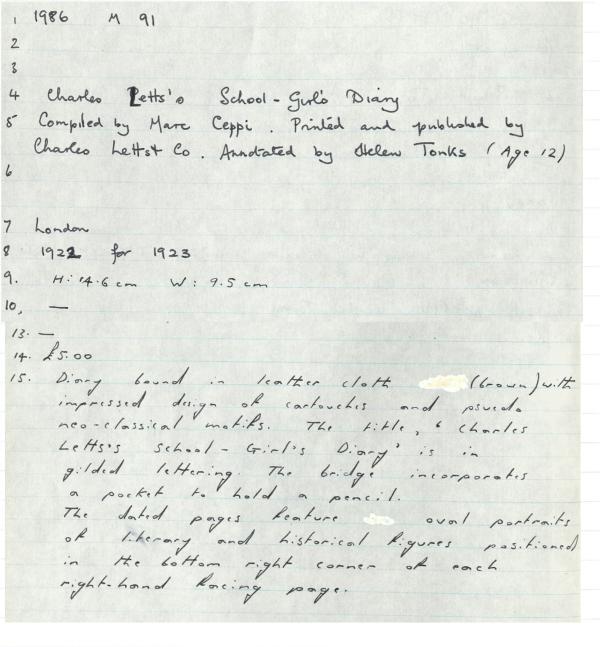 1 1986 M 91
2
3
4 Charles Letts's School-Girl's Diary
5 Compiled by Marc Ceppi. Printed and published by
Charles Letts & Co. Annotated by Helen Tonks (Age 12)
6
7 London
8 1922 for 1923
9. H: 14.6 cm W: 9.5 cm
10, —
13. —
14. £5.00
15. Diary bound in leather cloth (brown) with
impressed design of cartouches and psuedo
neo-classical motifs. The title, 'Charles
Letts's School-Girl's Diary' is in
gilded lettering. The bridge incorporates
a pocket to hold a pencil.
The dated pages feature oval portraits
of literary and historical figures positioned
in the bottom right corner of each
right-hand facing page.